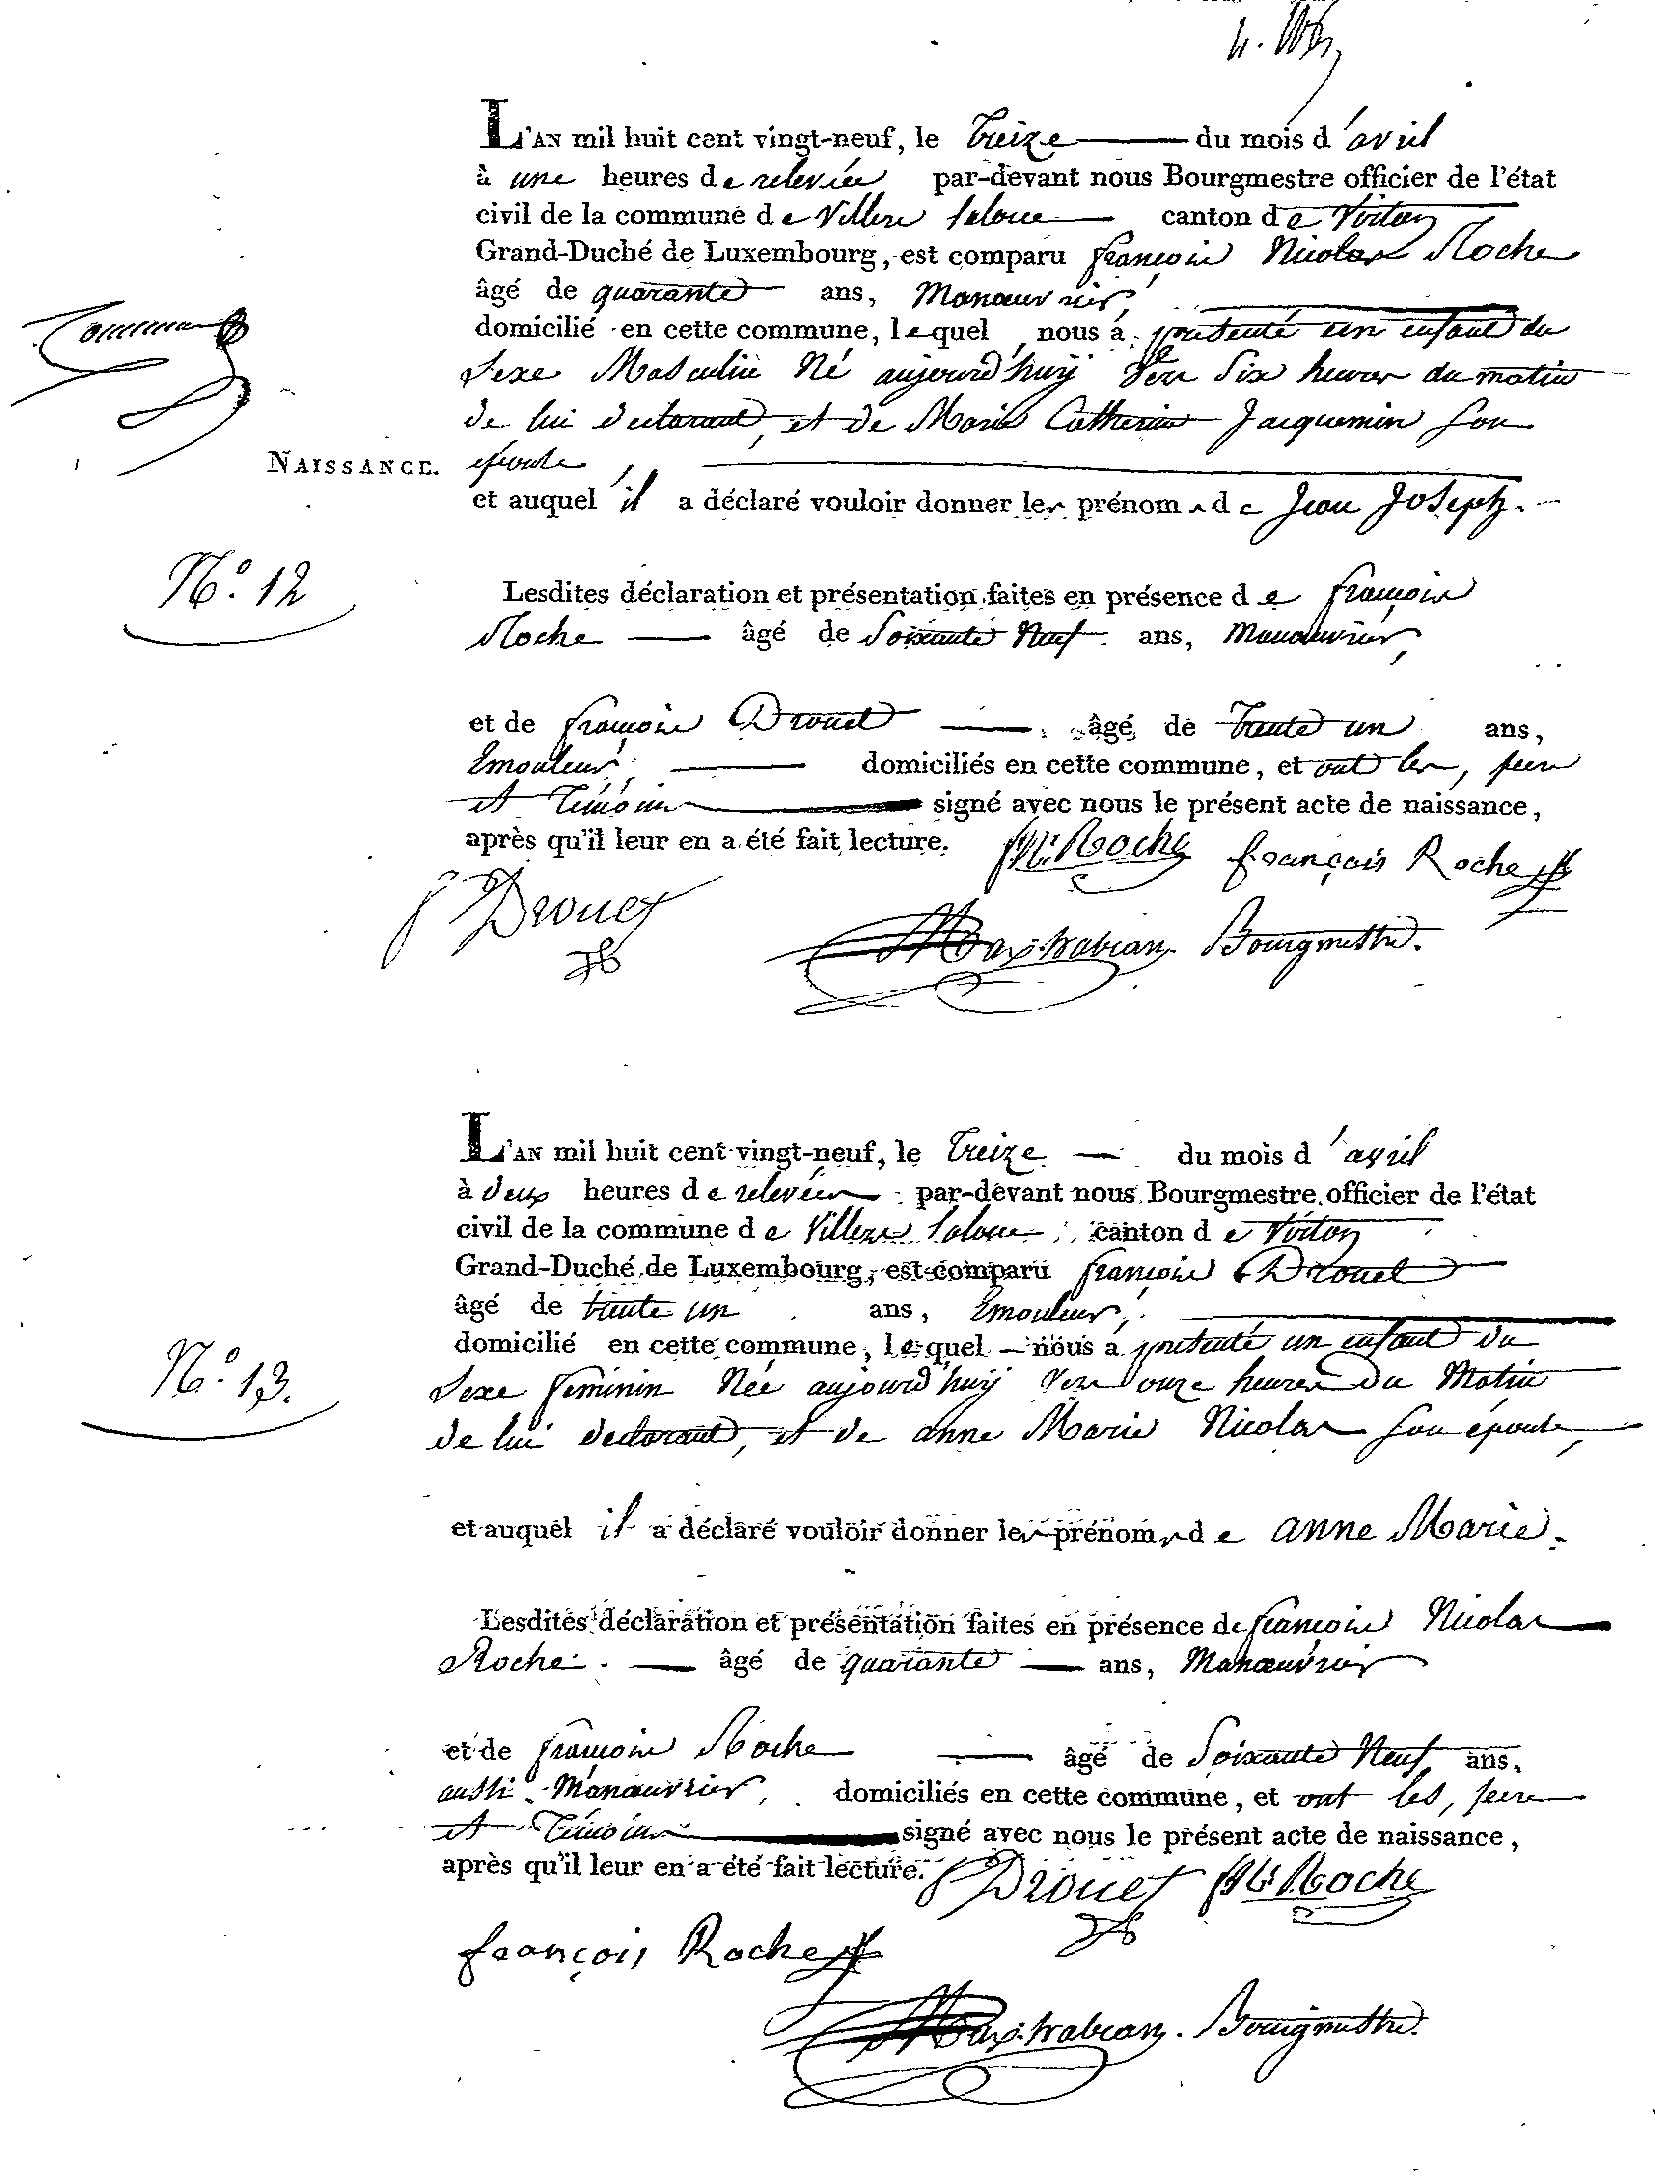 L'AN mil huit cent vingt-neuf, le Treize du mois d'avril
à une heures de relevée par-devant nous Bourgmestre officier de l'état
civil de la commune de Villers laloue canton de Virton
Grand-Duché de Luxembourg, est comparu françois Nicolas Roche
âgé de quarante ans, Manœuvrier,
domicilié en cette commune, lequel nous a présenté un enfant du
Sexe Masculin Né aujourd'huÿ vers Six heures du matin
de lui declarant, et de Marie Catherine Jacquemin son
NAISSANCE. épouse,
et auquel il a déclaré vouloir donner les prénoms de Jean Joseph.
N.º 12
Lesdites déclaration et présentation faites en présence de françois
Roche âgé de Soixante Neuf ans, Manœuvrier,
et de françois Drouet âgé de trente un ans,
Emouleur, domiciliés en cette commune, et ont les, père
et Témoins signé avec nous le présent acte de naissance,
après qu'il leur en a été fait lecture. Roche françois Roche
Drouet
Bourgmestre.
L'AN mil huit cent vingt-neuf, le Treize du mois d'avril
à deux heures de relevée par-devant nous Bourgmestre officier de l'état
civil de la commune de Villers laloue canton de Virton
Grand-Duché de Luxembourg, est comparu françois Drouet
âgé de trente un ans, Emouleur,
domicilié en cette commune, lequel nous a présenté un enfant du
N.º 13.
Sexe feminin Née aujourd'huÿ vers onze heures du Matin
de lui declarant, et de anne Marie Nicolas son épouse,
et auquel il a déclaré vouloir donner les prénoms de anne Marie.
Lesdites déclaration et présentation faites en présence de françois Nicolas
Roche âgé de quarante ans, Manœuvrier
et de françois Roche âgé de Soixante Neuf ans,
aussi Manœuvrier, domiciliés en cette commune, et ont les, père
et Témoins signé avec nous le présent acte de naissance,
après qu'il leur en a été fait lecture. Drouet Roche
françois Roche
Bourgmestre.